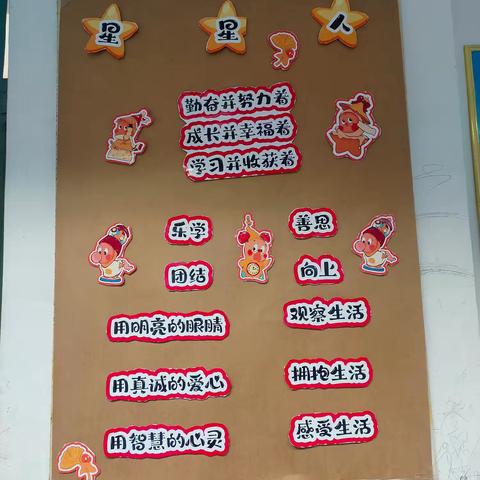 星 星 人
勤奋并努力着
成长并幸福着
学习并收获着
乐学 善思
团结 向上
用明亮的眼睛 观察生活
用真诚的爱心 拥抱生活
用智慧的心灵 感受生活